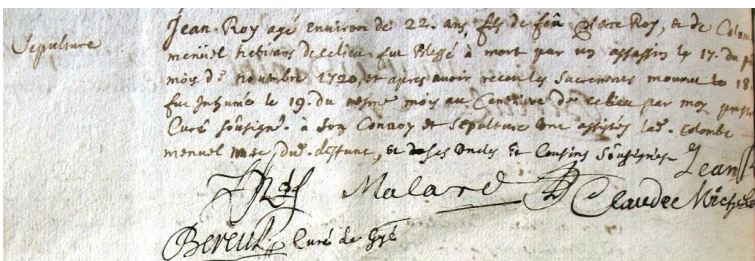 Sepulture
Jean Roy agé environ de 22. ans, fils de feû Pierre Roy, et de Colom
menuel natif de ce lieu fut Blessé à mort par un assassin le 17. du p
mois de novembre 1720, et apres avoir receu les Sacrements mourut le 18
fut Inhumé le 19. du mesme mois au Cimetiere de ce lieu par moy
Curé soûsigné. à son Convoy et sepulture ont assistés lad. Colombe
menuel mere dud. deffunt, et de ses oncles et Cousins soûsignés Jean
Malard Claude Michel
Curé de Gyé